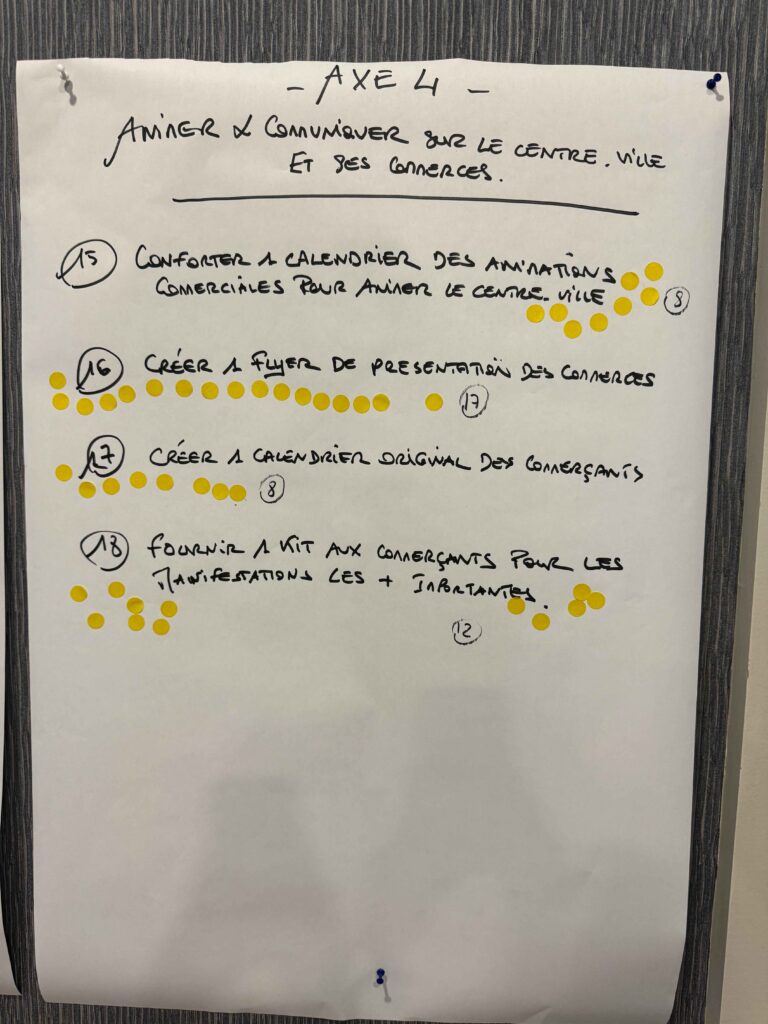 - AXE 4 -
ANIMER & COMUNIQUER SUR LE CENTRE. VILLE
ET SES COMMERCES.
15 CONFORTER 1 CALENDRIER DES ANIMATIONS
COMERCIALES POUR ANIMER LE CENTRE-VILLE 8
16 CRÉER 1 FLYER DE PRESENTATION DES COMMERCES
17
17 CRÉER 1 CALENDRIER ORIGINAL DES COMMERÇANTS
8
18 FOURNIR 1 KIT AUX COMMERÇANTS POUR LES
MANIFESTATIONS LES + IMPORTANTES.
12